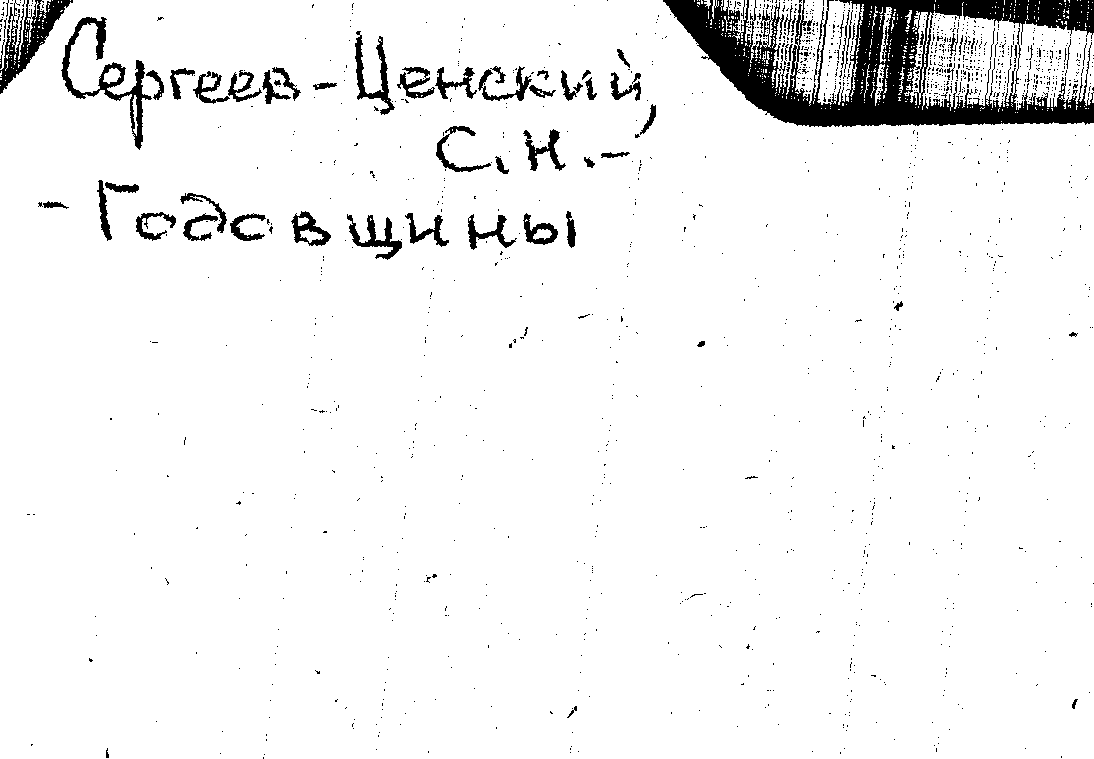 Сергеев-Ценский,
С.Н.-
-Годовщины